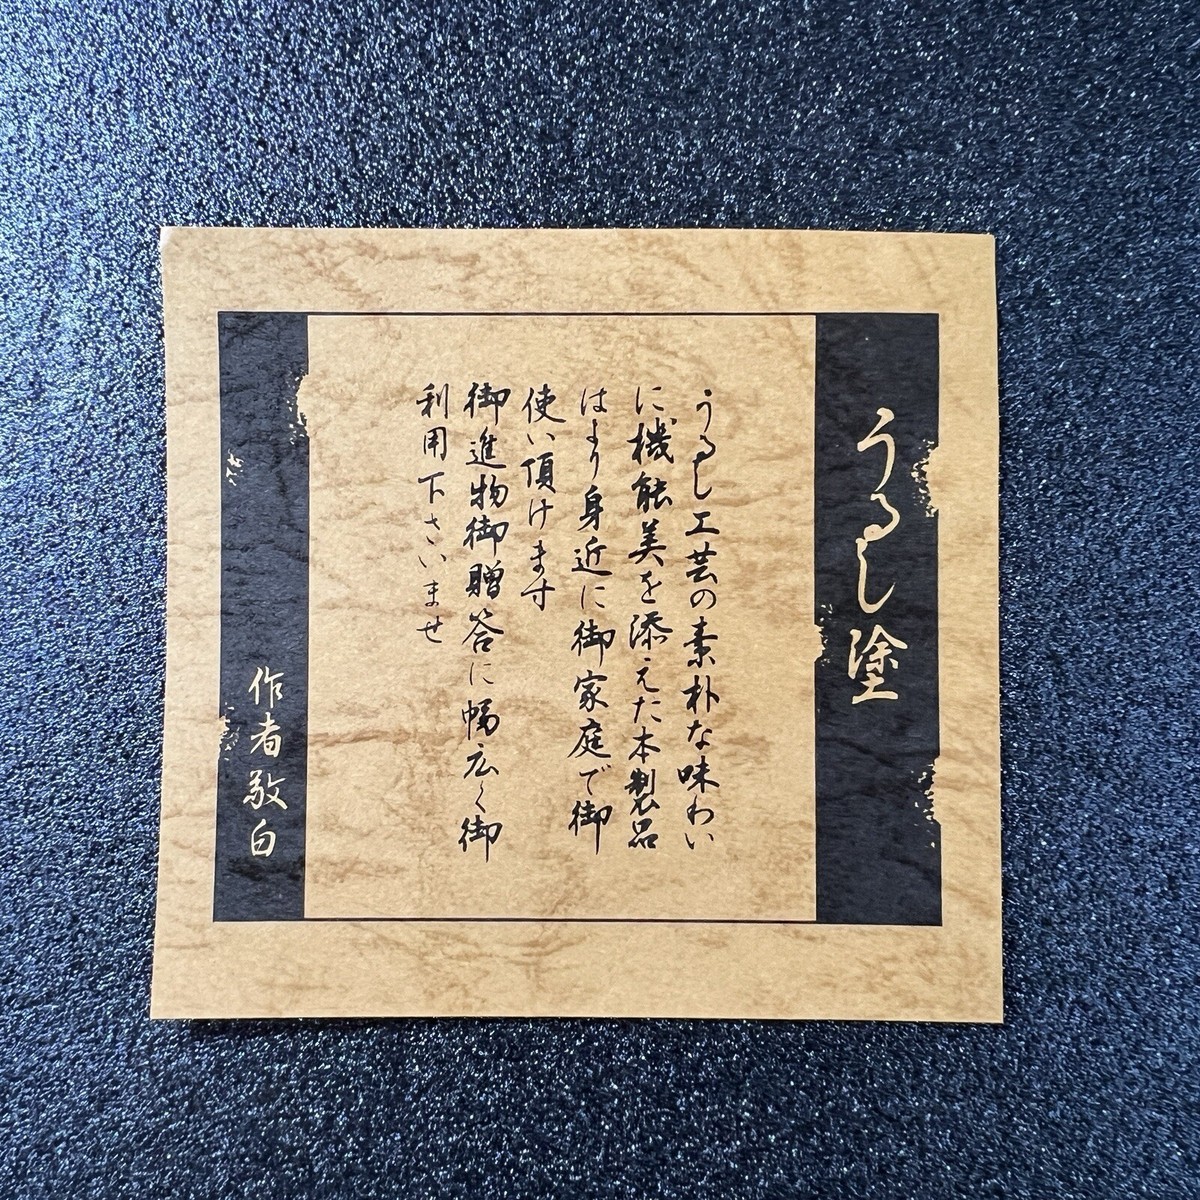 うるし塗
うるし工芸の素朴な味わい
に機能美を添えた本製品
はより身近に御家庭で御
使い頂けます
御進物御贈答に幅広く御
利用下さいませ
作者敬白